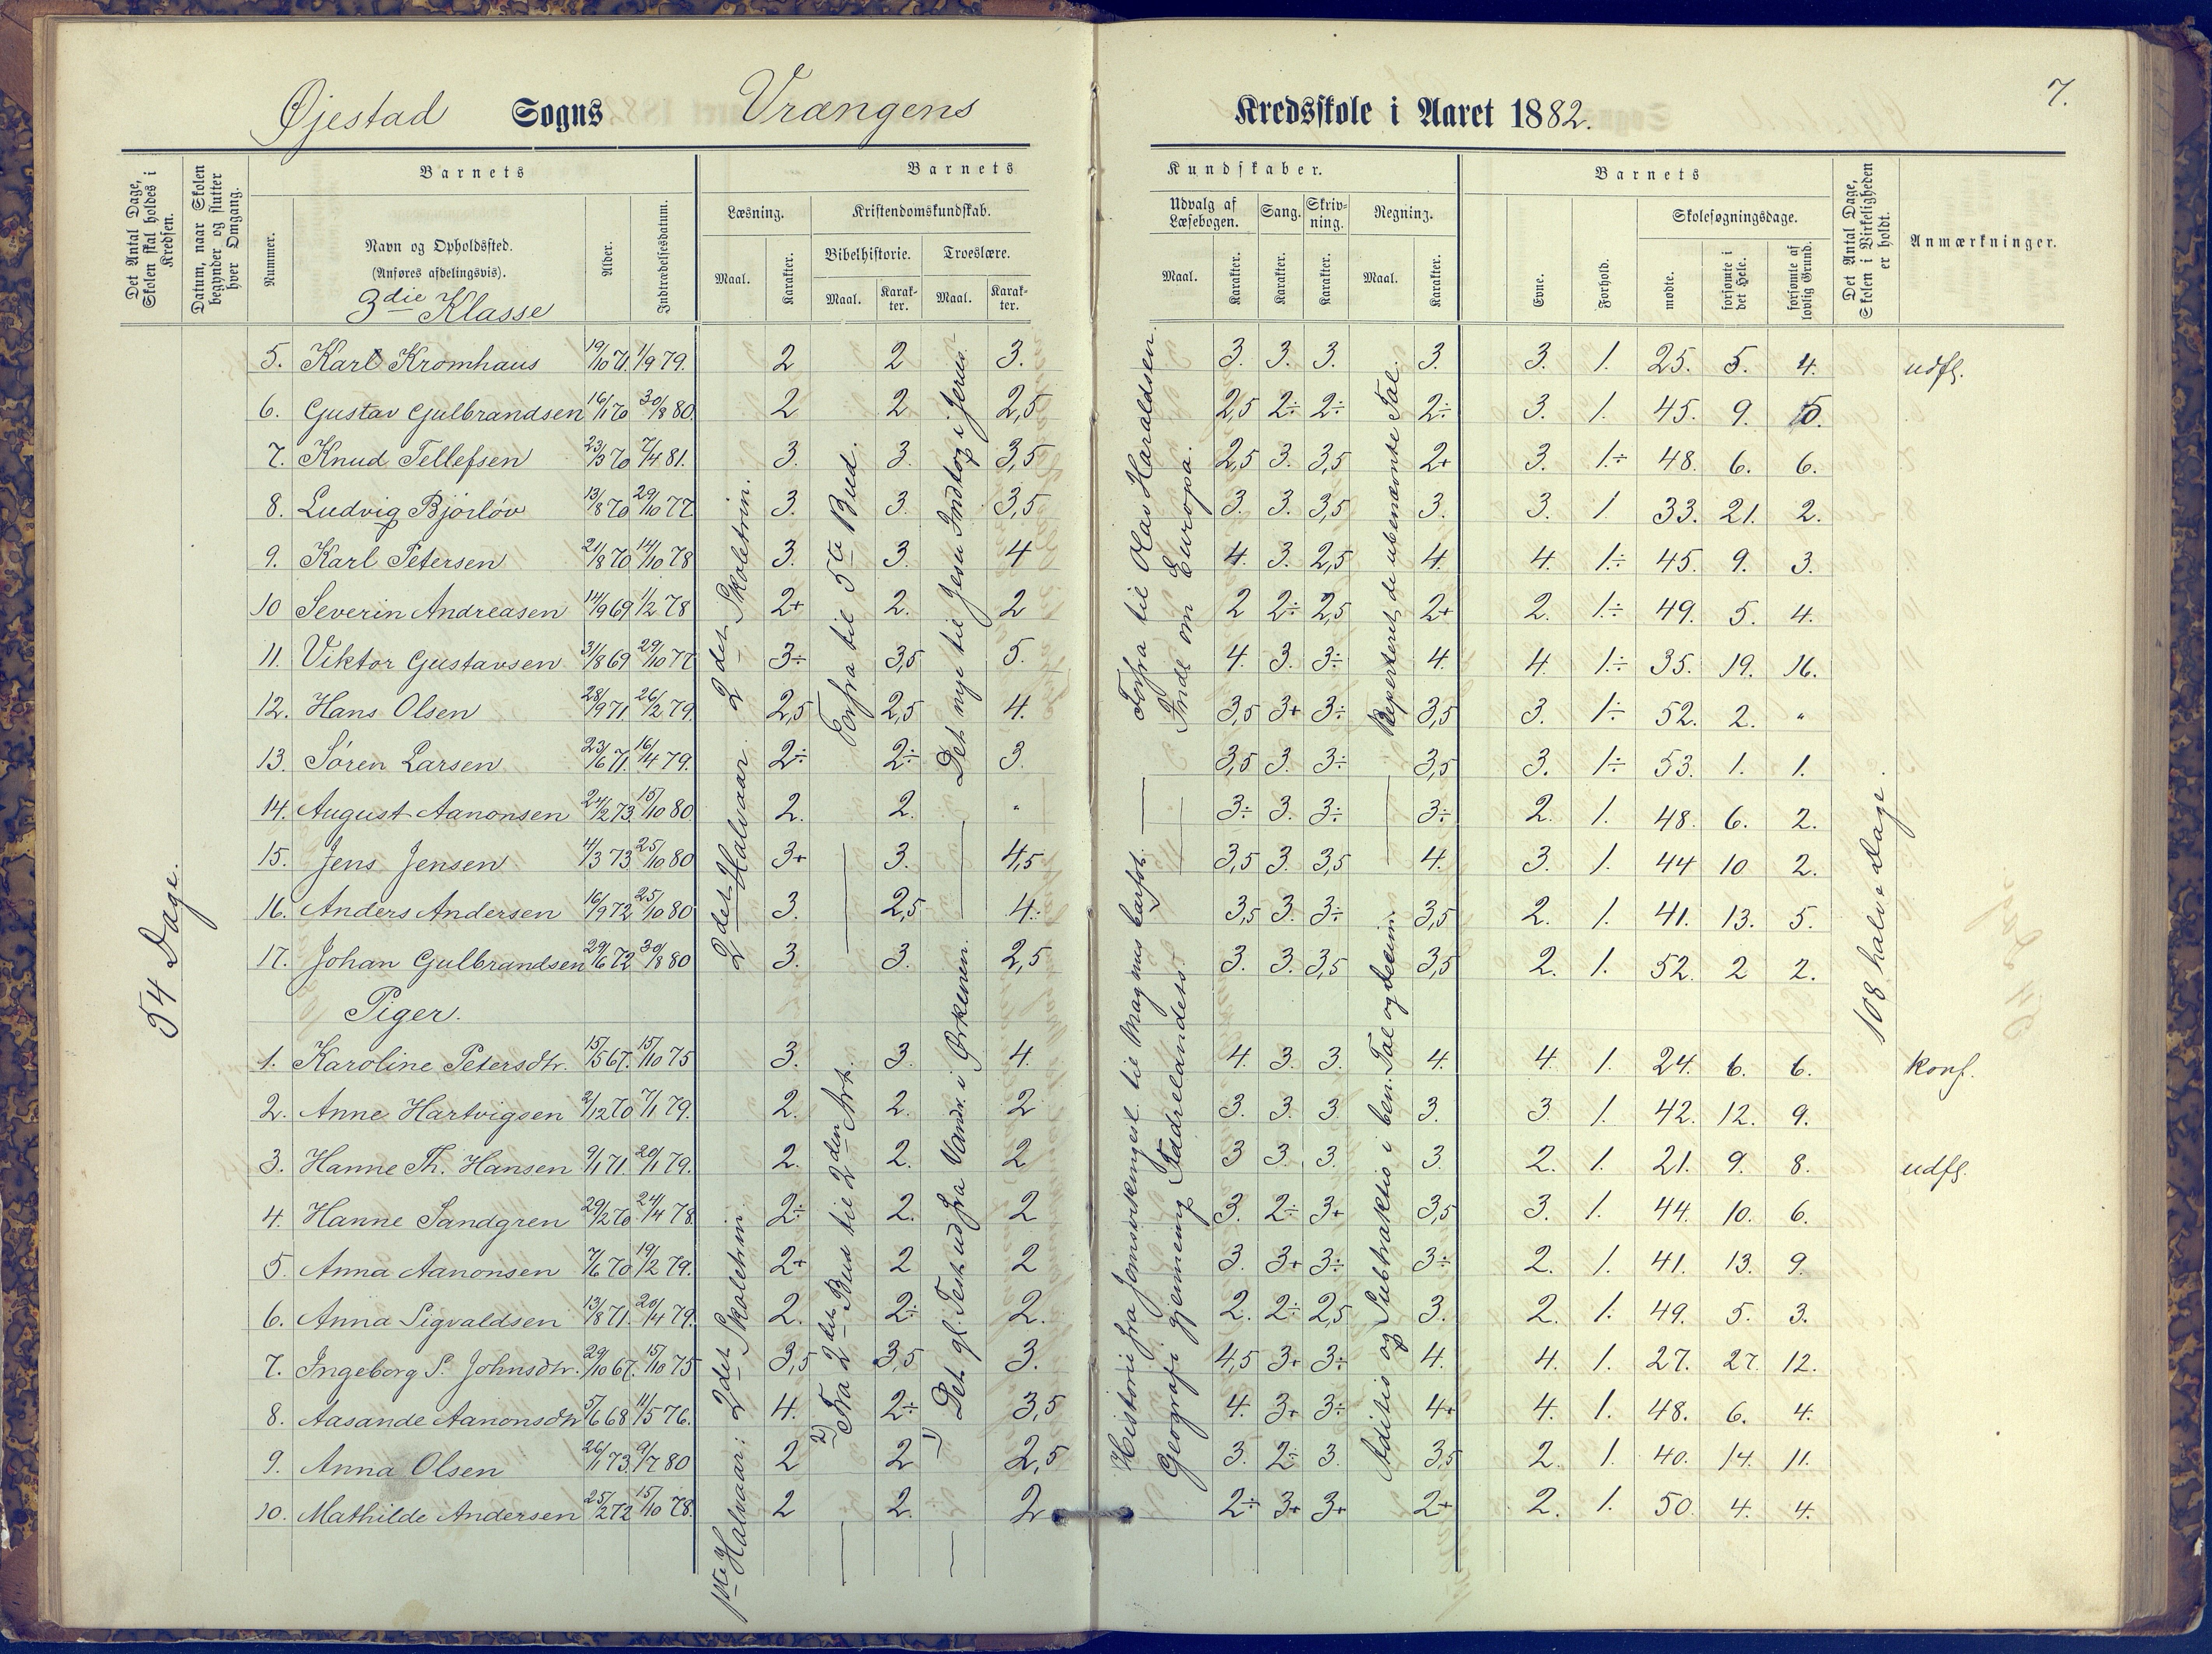 7.
Øjestad Sogns Vrængens Kredsskole i Aaret 1882.
Det Antal Dage, Skolen skal holdes i Kredsen.
Datum, naar Skolen begynder og slutter hver Omgang.
Barnets
Nummer.
Navn og Opholdssted.
(Anføres afdelingsvis).
3die Klasse
Alder.
Indtrædelsesdatum.
Barnets Kundskaber.
Læsning. Kristendomskundskab. Udvalg af Læsebogen. Sang. Skrivning. Regning.
Bibelhistorie. Troeslære.
Maal. Karakter. Maal. Karakter. Maal. Karakter. Maal. Karakter. Karakter. Karakter. Maal. Karakter.
Barnets
Evne. Forhold. Skolesøgningsdage.
mødte. forsømte i det Hele. forsømte af lovlig Grund.
Det Antal Dage, Skolen i Virkeligheden er holdt.
Anmærkninger.
5. Karl Kromhaus 19/10 71. 1/9 79. 2 2 3. 3. 3. 3. 3. 3. 1. 25. 5. 4. udfl.
6. Gustav Gulbrandsen 16/1 70 30/8 80. 2 2 2,5 2,5 2÷ 2÷ 2÷ 3. 1. 45. 9. 5.
7. Knud Tellefsen 23/5 70 7/4 81. 3. 3. 3,5 2,5 3. 3,5 2+ 3. 1.÷ 48. 6. 6.
8. Ludvig Bjørløv 13/8 70 29/10 77 3. 3. 3,5 3. 3. 3,5 3. 3. 1 33. 21. 2.
9. Karl Petersen 21/8 70 14/10 78 3. 3. 4 4. 3. 2,5 4. 4. 1.÷ 45. 9. 3.
10 Severin Andreasen 14/9 69 1/2 78 2+ 2. 2 2 2÷ 2,5 2+ 2. 1.÷ 49. 5. 4.
11. Viktor Gustavsen 31/8 69 29/10 77 3÷ 3,5 5. 4. 3. 3÷ 4. 4. 1.÷ 35. 19. 16.
12. Hans Olsen 28/9 71. 26/2 79. 2,5 2,5 4. 3,5 3+ 3÷ 3,5 3. 1÷ 52. 2. "
13. Søren Larsen 23/6 71. 16/4 79. 2÷ 2÷ 3. 3,5 3. 3÷ 3,5 3. 1÷ 53. 1. 1.
14. August Aanonsen 24/2 73. 15/10 80. 2. 2. " 3÷ 3. 3÷ 3÷ 2. 1. 48. 6. 2.
15. Jens Jensen 4/3 73 25/10 80 3+ 3. 4,5 3,5 3. 3,5 4. 3. 1. 44 10 2.
16. Anders Andersen 16/9 72 25/10 80 3. 2,5 4. 3,5 3. 3÷ 3,5 2. 1. 41. 13. 5.
17. Johan Gulbrandsen 29/6 72 30/8 80 3. 3. 2,5 3. 3. 3,5 3,5 2. 1. 52. 2 2.
Piger.
1. Karoline Petersdtr. 15/5 67. 15/10 75 3. 3. 4. 4. 3. 3. 4. 4. 1. 24. 6. 6. konf.
2. Anne Hartvigsen 2/12 70 7/1 79. 2. 2. 2 3. 3. 3. 3. 3 1. 42. 12. 9.
3. Hanne Th. Hansen 9/1 71. 20/1 79. 2. 2. 2 3 3. 3. 3. 2. 1. 21. 9. 8. udfl.
4. Hanne Sandgren 29/2 70. 24/4 78. 2÷ 2. 2 3. 2÷ 3+ 3,5 3. 1. 44. 10. 6.
5. Anna Aanonsen 7/6 70 19/2 79. 2+ 2 2 3. 3+ 3÷ 3÷ 2. 1. 41. 13. 9.
6. Anna Sigvaldsen 13/8 71. 20/4 79. 2. 2÷ 2. 2. 2÷ 2,5 3. 2. 1. 49. 5. 3.
7. Ingeborg S. Johnsdtr. 29/10 67. 15/10 75 3,5 3,5 3. 4,5 3+ 3÷ 4. 4. 1. 27. 27. 12.
8. Aasande Aanonsdtr 5/6 68 11/5 76. 4. 2÷ 3,5 4. 3+ 3÷ 4+ 4. 1. 48. 6. 4.
9. Anna Olsen 26/1 73. 9/7 80 2 2 2,5 3. 2÷ 3. 3,5 2. 1. 40. 14. 11.
10. Mathilde Andersen 25/2 72 15/10 78. 2 2. 2 2÷ 3+ 3+ 2+ 2. 1. 50. 4. 4.
54 Dage.
1ste Halvaar: 2det Skoletrin.
2det Halvaar. 2det Skoletrin.
2) Fra 2det Bud til 2den Art.
Forfra til 5te Bud.
1) Det gl. Test. ud fra Vandr. i Ørkenen.
Det nye til Jesu Indtog i Jerus.
Historie fra Jomsvikingesl. til Magnus barfot.
Forfra til Olav Haraldsen.
Geografi gjennemg. Fædrelandets.
Indl. om Europa.
Aditis og Subtraktis i ben. Tal og decim.
Repeteret de ubenævnte Tal.
108 halve Dage.